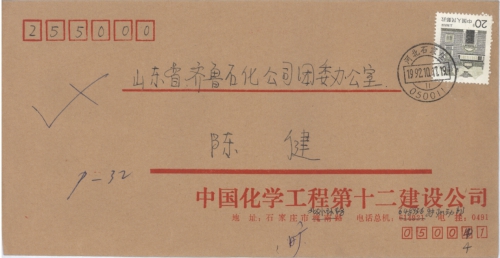 255000
20分
中国人民邮政
河北石家庄
1992.10.17.19
11
050011
山东省齐鲁石化公司团委办公室
陈 健
9-32
中国化学工程第十二建设公司
地址:石家庄市 电话总机: 电挂:0491
050011